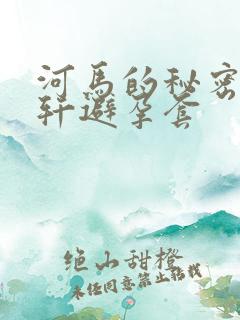 河马的秘密
轩避孕套
绝山甜橙
未经同意禁止转载